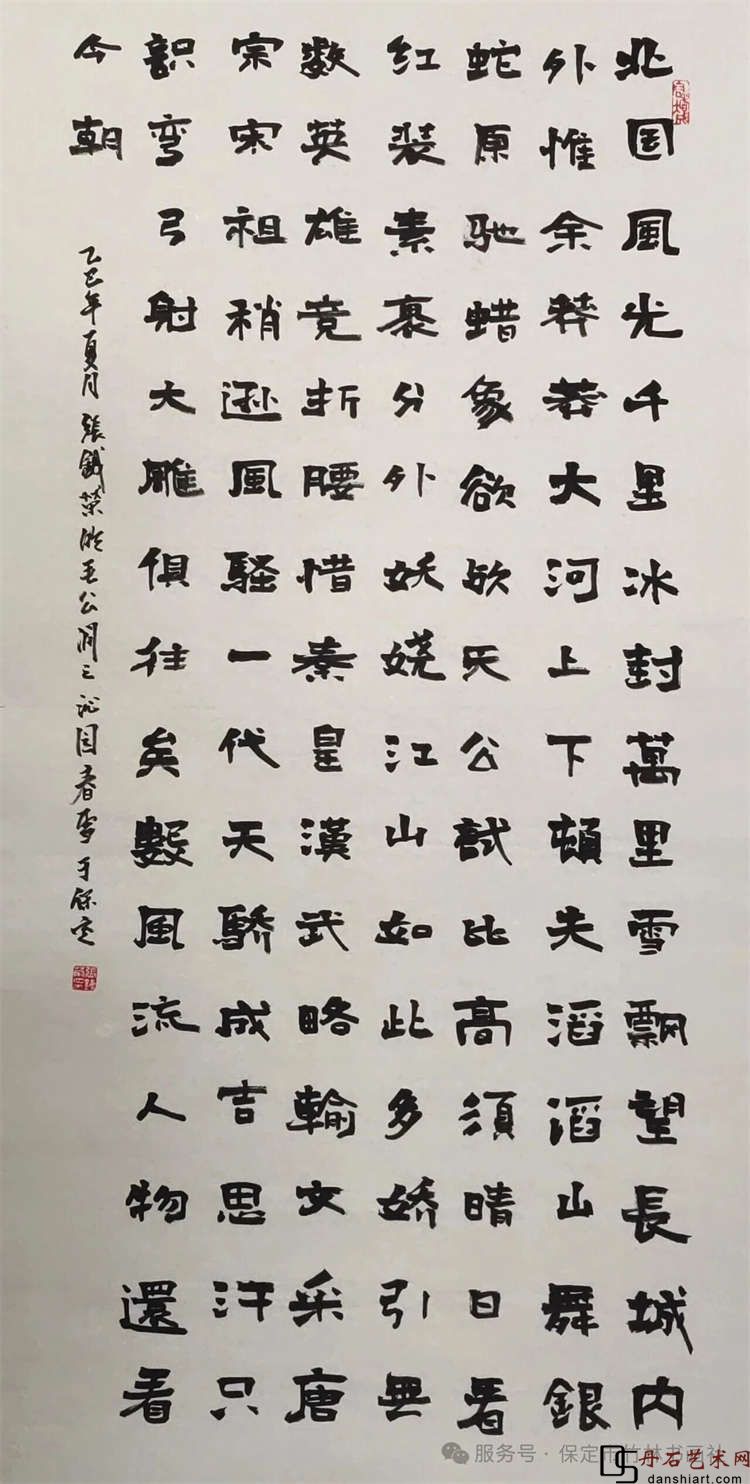 北国風光千里冰封萬里雪飄望長城内
外惟余莽莽大河上下頓失滔滔山舞銀
蛇原驰蜡象欲欤天公試比高須晴日看
红装素裹分外妖娆江山如此多娇引無
数英雄竞折腰惜秦皇漢武略輸文采唐
宗宋祖稍逊風騷一代天骄成吉思汗只
识弯弓射大雕俱往矣數風流人物還看
今朝
乙巳年夏月張 榮 毛公润之沁园春雪于保定
服务号·保定市竹林书画社
丹石艺术网
danshiart.com